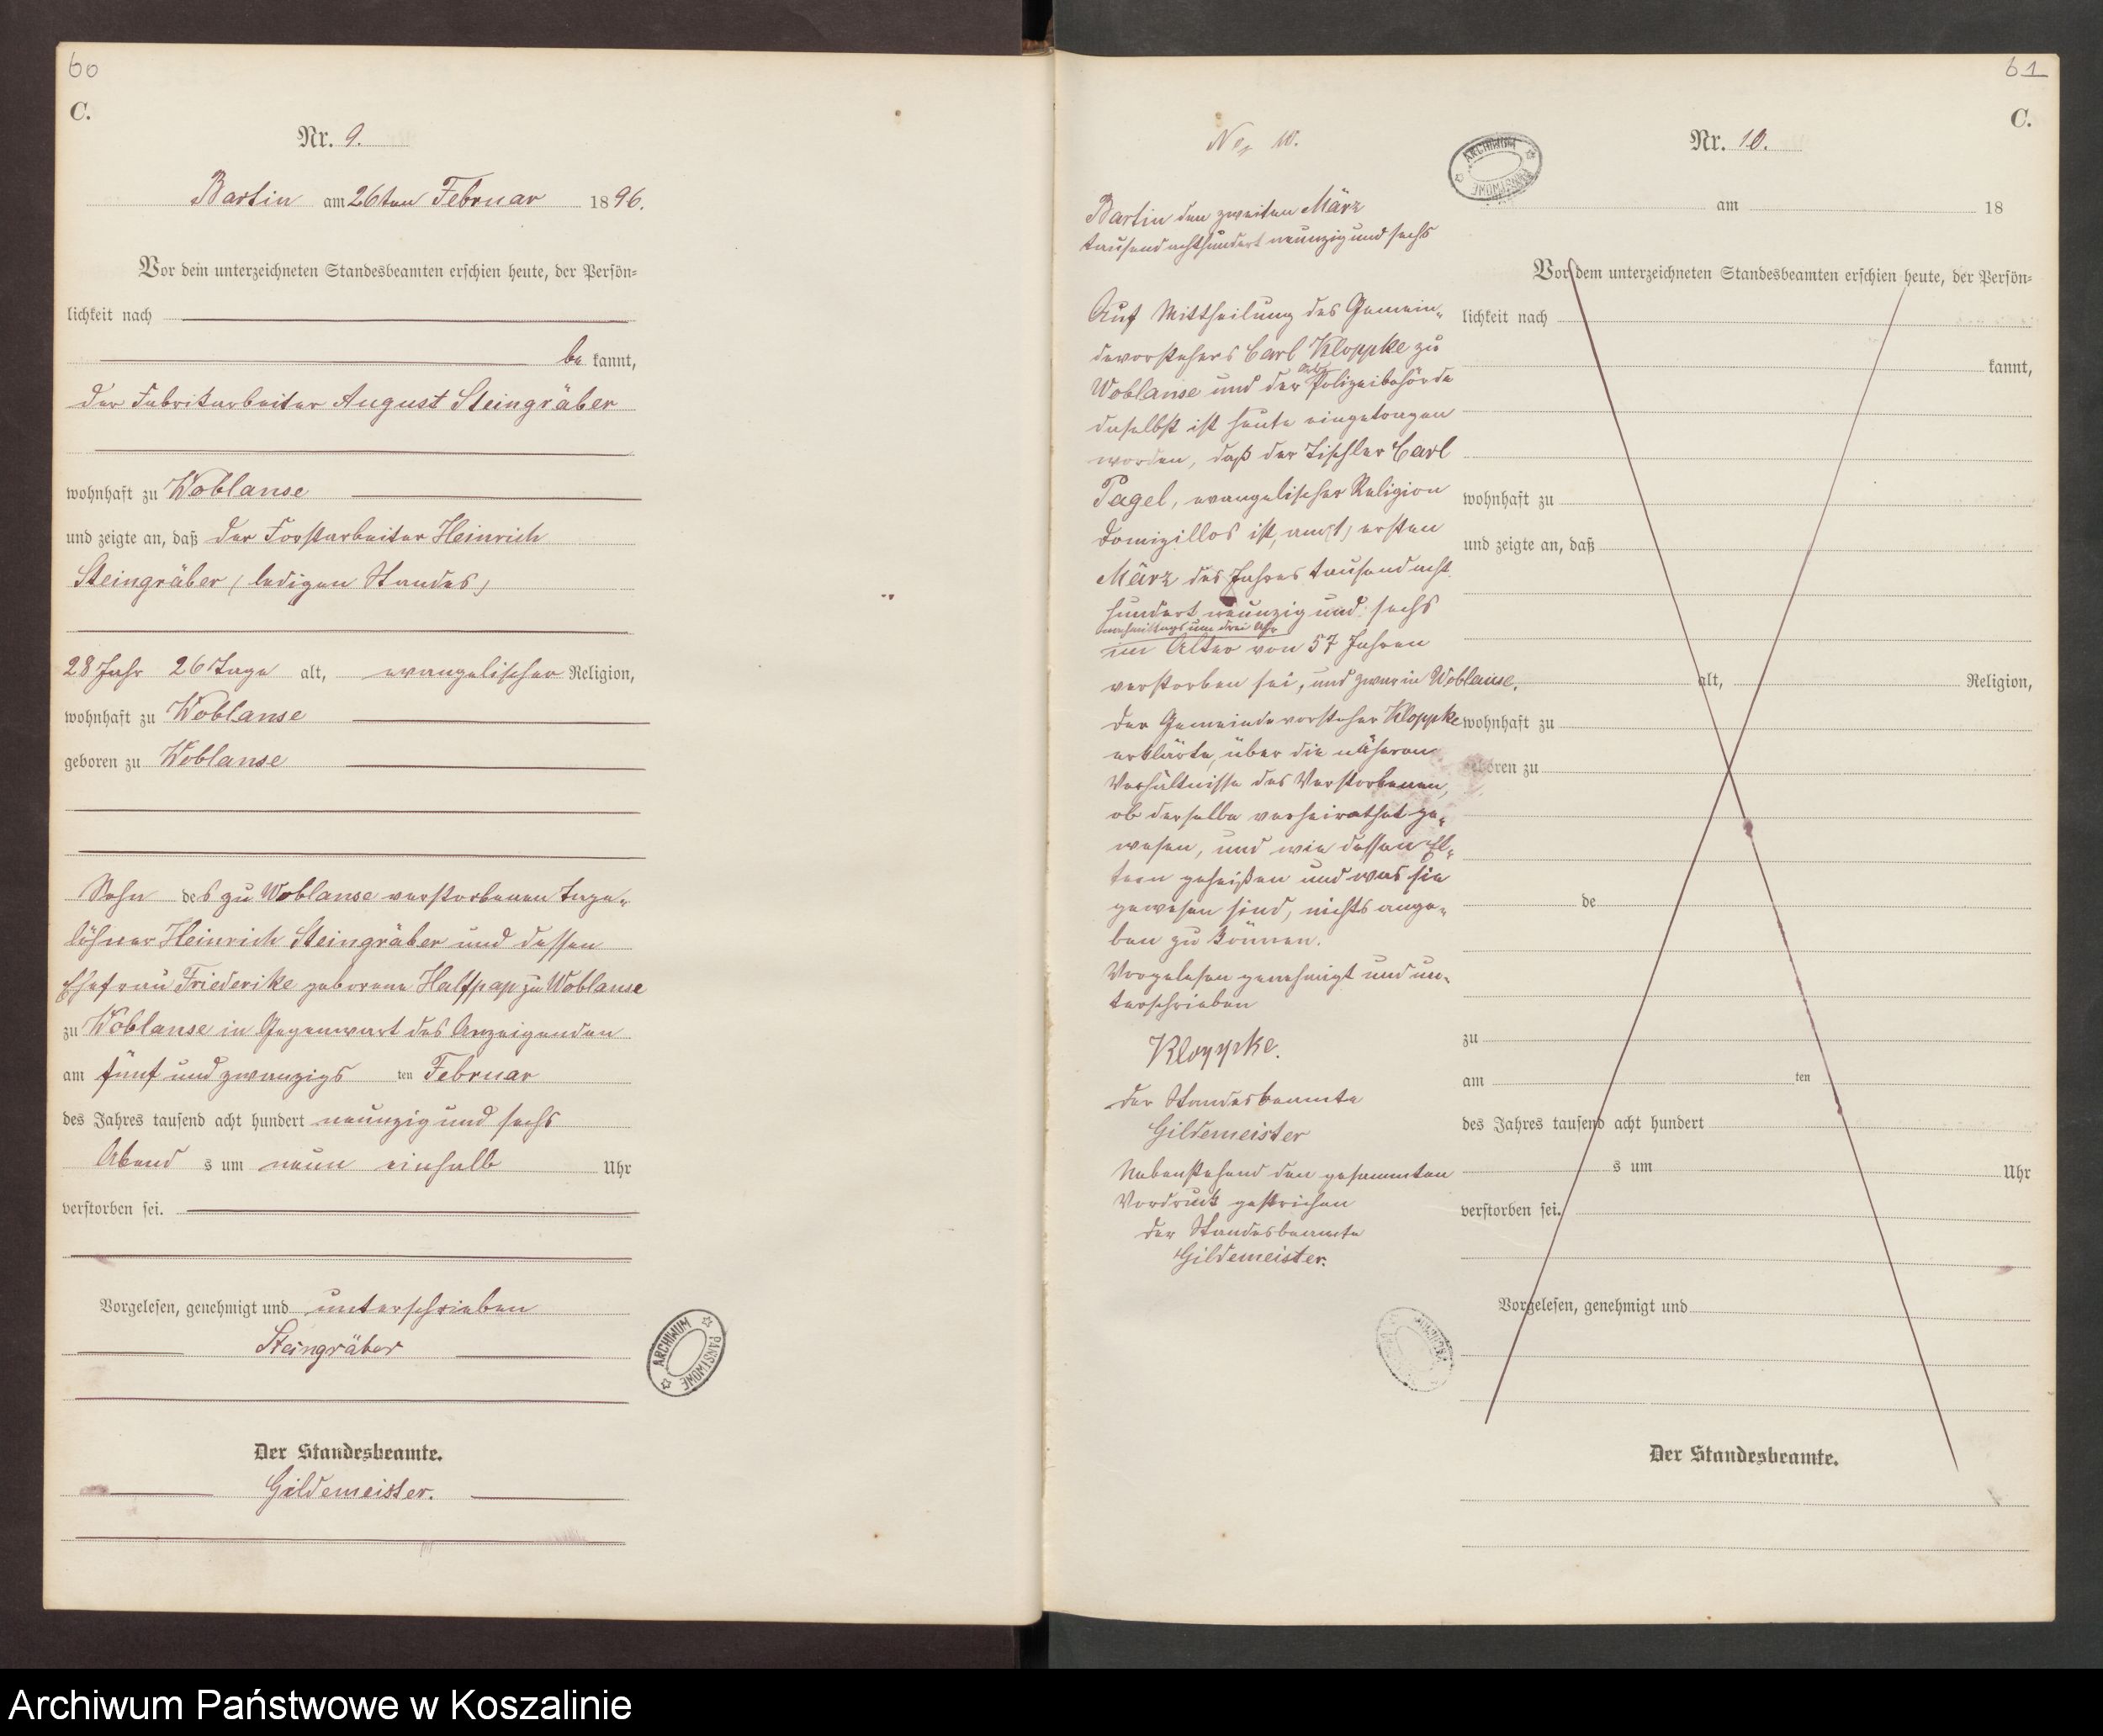 60
C.
Nr. 9.
Bartin am 26ten Februar 1896.
Vor dem unterzeichneten Standesbeamten erschien heute, der Persön=
lichkeit nach
be kannt,
der Fabrikarbeiter August Steingräber
wohnhaft zu Woblanse
und zeigte an, daß der Forstarbeiter Heinrich
Steingräber (ledigen Standes)
28 Jahr 26 Tage alt, evangelischer Religion,
wohnhaft zu Woblanse
geboren zu Woblanse
Sohn des zu Woblanse verstorbenen Tage-
löhner Heinrich Steingräber und dessen
Ehefrau Friederike geborene Halfpap zu Woblanse
zu Woblanse in Gegenwart des Anzeigenden
am fünf und zwanzigs ten Februar
des Jahres tausend acht hundert neunzig und sechs
Abend s um neun einhalb Uhr
verstorben sei.
Vorgelesen, genehmigt und unterschrieben
Steingräber
Der Standesbeamte.
Gildemeister.
ARCHIWUM PAŃSTWOWE
61
C.
No 10.
Bartin den zweiten März
tausend achthundert neunzig und sechs
Auf Mittheilung des Gemein-
devorstehers Carl Kloppke zu
Woblanse und der Polizeibehörde
daselbst ist heute eingetragen
worden, daß der Tischler Carl
Pagel, evangelischer Religion
domizillos ist, am (1) ersten
März des Jahres tausend acht
hundert neunzig und sechs
nachmittags um drei Uhr
im Alter von 57 Jahren
verstorben sei, und zwar in Woblanse.
Der Gemeindevorsteher Kloppke
erklärte, über die näheren
Verhältnisse des Verstorbenen,
ob derselbe verheirathet ge-
wesen, und wie dessen El-
tern geheißen und was sie
gewesen sind, nichts ange-
ben zu können.
Vorgelesen genehmigt und un-
terschrieben
Kloppke.
Der Standesbeamte
Gildemeister
Nebenstehend den gesammten
Vordruck gestrichen
Der Standesbeamte
Gildemeister.
ARCHIWUM PAŃSTWOWE
Nr. 10.
am 18
Vor dem unterzeichneten Standesbeamten erschien heute, der Persön=
lichkeit nach
kannt,
wohnhaft zu
und zeigte an, daß
alt, Religion,
wohnhaft zu
geboren zu
de
zu
am ten
des Jahres tausend acht hundert
s um Uhr
verstorben sei.
Vorgelesen, genehmigt und
Der Standesbeamte.
Archiwum Państwowe w Koszalinie